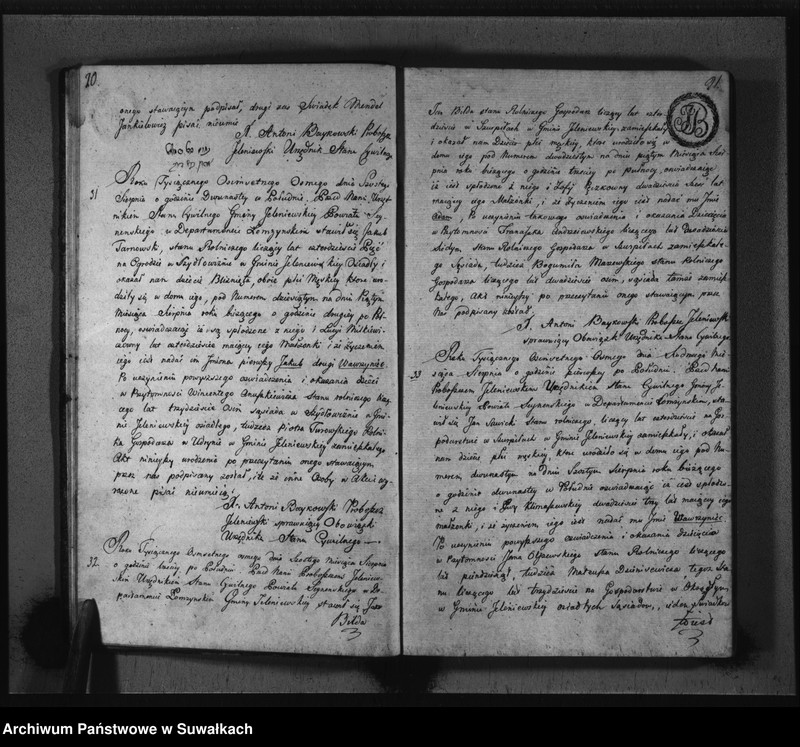 20
onego stawaiącym podpisał, drugi zas Swiadek Mendel
Jankielowicz pisać nieumie
X. Antoni Baykowski Proboszcz
Jeleniewski Urzędnik Stanu Cywilnego
31
Roku Tysiącznego Osmsetnego Osmego dnia Szostego
Sierpnia o godzinie Dwunastey w Południe. Przed Nami Urzęd-
nikiem Stanu Cywilnego Gminy Jeleniewskiey Powiatu Sey-
nenskiego w Departamencie Łomżynskim stawił się Jakub
Tarnowski, stanu Rolniczego liczący lat czterdziescie
na Ogrodzie w Szydłowiźnie w Gminie Jeleniewskiey Osiadły i
okazał nam dzieci Bliznięta oboie płci Męskiey ktore uro-
dziły się w domu iego, pod Numerem dziewiątym na dniu Piątym
Miesiąca Sierpnia roku bieżącego o godzinie drugiey po Pół-
nocy, oswiadczaiąc iż są spłodzone z niego i Łucyi
lat czterdziescie maiącey iego Małżonki i że życzeniem
iego iest nadać im Jmiona pierwszy Jakub drugi Wawrzyniec
Po uczynieniu powyższego oswiadczenia i okazaniu dzieci
w Przytomności Wincentego Stanu rolniczego licz-
cego lat trzydziescie Osm Sąsiada w Szydłowiźnie w Gmi-
nie Jeleniewskiey osiadłego, tudzież Piotra Turowskiego Rolni-
ka Gospodarza w Udrynie w Gminie Jeleniewskiey zamieszkałego
Akt ninieyszy urodzenia po przeczytaniu onego stawaiącym,
przez nas podpisany został, ile że inne Osoby w Akcie wy-
rażone pisać nieumieią
X. Antoni Baykowski Proboszcz
Jeleniewski sprawuiący Obowiązki
Urzędnika Stanu Cywilnego
32.
Roku Tysiącznego Osmsetnego osmego dnia Szostego Miesiąca Sierpnia
o godzinie po Południu Przed Nami Proboszczem Jeleniew-
skim Urzędnikiem Stanu Cywilnego Powiatu Seynenskiego w De-
partamencie Łomżynskim Gminy Jeleniewskiey stawił się Jan
Bilda
21.
Jan Bilda stanu Rolniczego Gospodarz liczący lat czter-
dziescie w Szurpiłach w Gminie Jeleniewskiey zamieszkały
i okazał nam Dziecie płci męskiey, ktore urodziło się w
domu iego pod Numerem dwudziestym na dniu piątym Miesiąca Sier-
pnia roku bieżącego o godzinie trzeciey po pułnocy, oswiadczaiąc
iż iest spłodzone z niego i Zofij dwadziescie lat
maiącey iego Małżonki, i że życzeniem iego iest nadać mu Jmie
Adam, Po uczynieniu takowego oswiadczenia i okazania Dziecięcia
w Przytomności Franciszka liczącego lat
Stanu Rolniczego Gospodarza w Szurpiłach zamieszkałe-
go Sąsiada, tudzież Bogumiła Mazewskiego stanu Rolniczego
Gospodarza liczącego lat dwadziescie osm, sąsiada tamże zamiesz-
kałego, Akt ninieyszy po przeczytaniu onego stawaiącym, przez
Nas podpisany został
X. Antoni Baykowski Proboszcz Jeleniewski
sprawuiący Obowiązki Urzędnika Stanu Cywilnego
33
Roku Tysiącznego Osmsetnego Osmego dnia Siodmego Mie-
siąca Sierpnia o godzinie pierwszey po Południu. Przed Nami
Proboszczem Jeleniewskim Urzędnikiem Stanu Cywilnego Gminy Je-
leniewskiey Powiatu Seynenskiego w Departamencie Łomżynskim, sta-
wił się Jan Sawicki Stanu rolniczego, liczący lat czterdziescie na Gos-
podarstwie w Szurpiłach w Gminie Jeleniewskiey zamieszkały, i okazał
nam dziecie płci męskiey, ktore urodziło się w domu iego pod Nu-
merem dwunastym na dniu Szostym Sierpnia roku bieżącego
o godzinie dwunastey w Południe oswiadczaiąc iż iest spłodzo-
ne z niego i Ewy Klimaszewskiey dwadziescie trzy lat maiącey iego
małżonki, i że życzeniem iego iest nadać mu Jmie Wawrzyniec
Po uczynieniu powyższego oswiadczenia i okazaniu dziecięcia
w Przytomności Jana Olszewskiego Stanu Rolniczego liczącego
lat piędziesiąt, tudzież Mateusza tegoż Sta-
nu liczącego lat trzydziescie na Gospodarstwie w
w Gminie Jeleniewskiey osiadłych Sąsiadów,
Archiwum Państwowe w Suwałkach